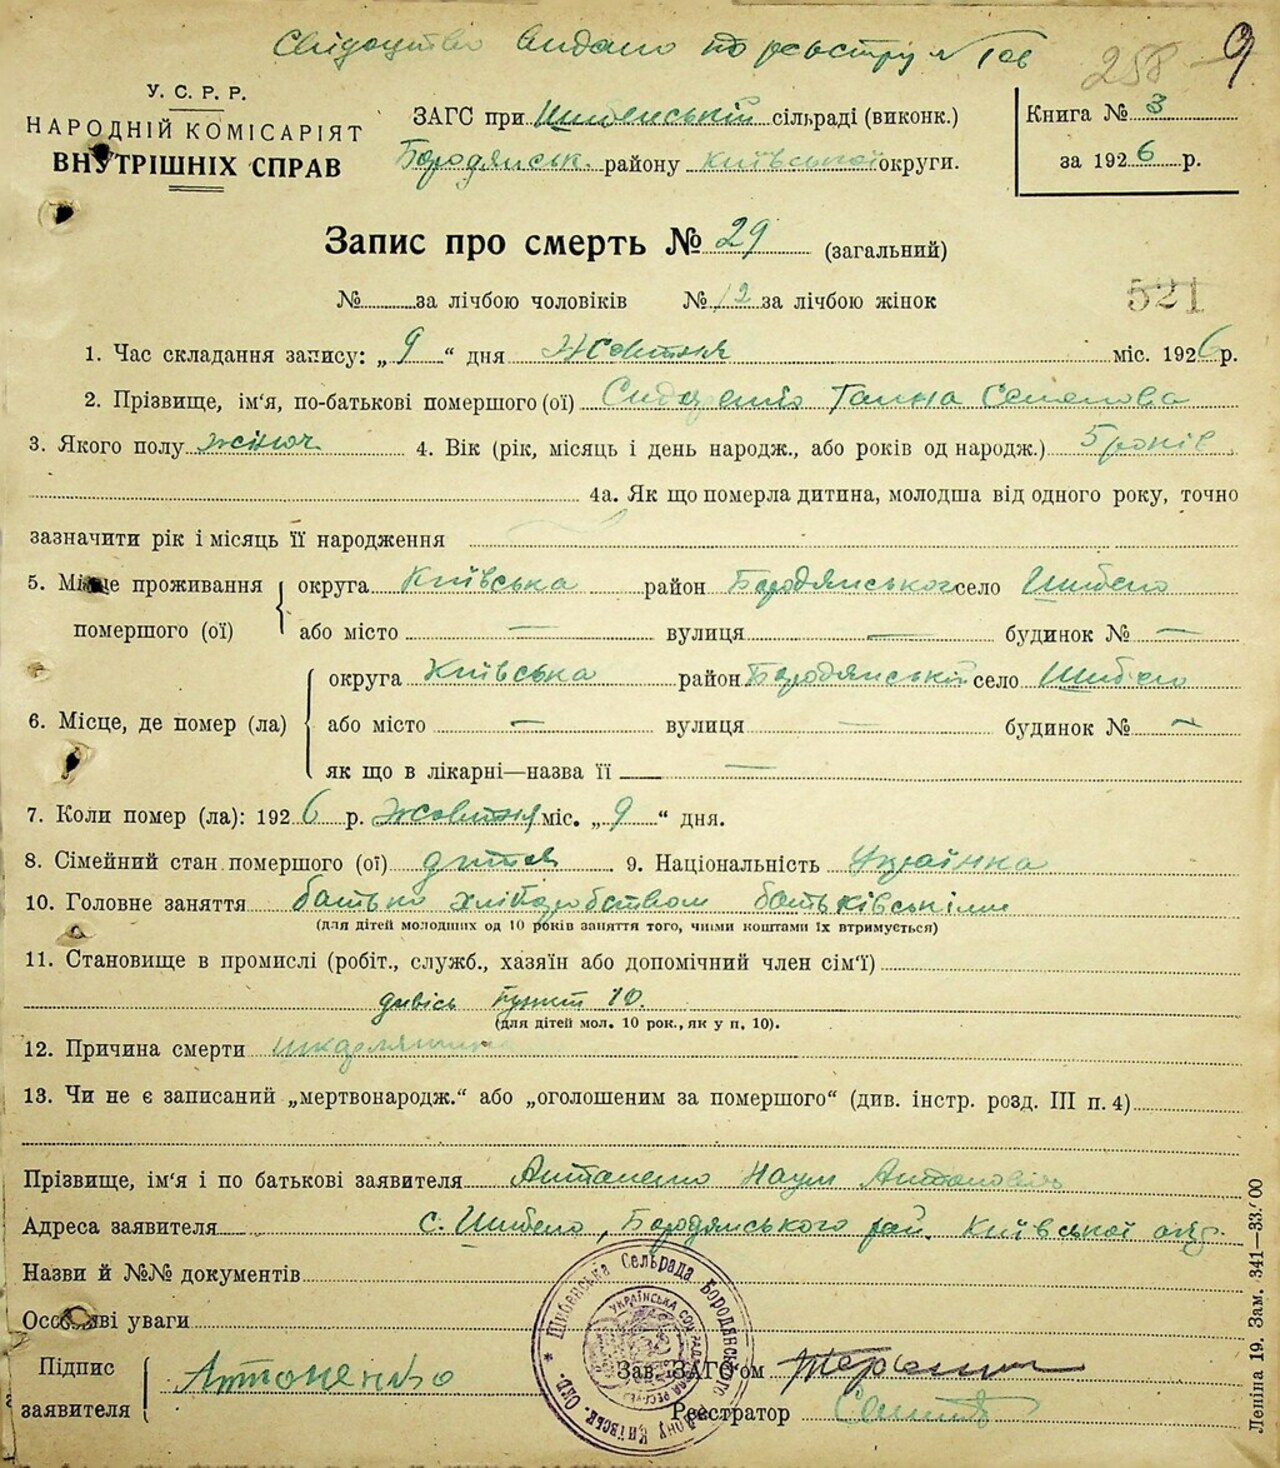 Свідоцтво видано по реєстру №
258 9
У. С. Р. Р.
НАРОДНІЙ КОМІСАРІЯТ
ВНУТРІШНІХ СПРАВ
ЗАГС при Шибенській сільраді (виконк.)
Бородянськ. району Київської округи.
Книга № 3
за 1926 р.
Запис про смерть № 29 (загальний)
№ за лічбою чоловіків № 12 за лічбою жінок
521
1. Час складання запису: „ 9 “ дня Жовтня міс. 1926 р.
2. Прізвище, ім‘я, по-батькові помершого (ої) Ганна Семенова
3. Якого полу жіноч 4. Вік (рік, місяць і день народж., або років од народж.) 5 років
4а. Як що померла дитина, молодша від одного року, точно
зазначити рік і місяць її народження
5. Місце проживання помершого (ої) округа Київська район Бородянського село Шибено
або місто — вулиця — будинок № —
6. Місце, де помер (ла) округа Київська район Бородянський село Шибено
або місто — вулиця — будинок № —
як що в лікарні—назва її —
7. Коли помер (ла): 1926 р. Жовтня міс. „ 9 “ дня.
8. Сімейний стан помершого (ої) дитя 9. Національність Українка
10. Головне заняття батько хліборобством
(для дітей молодших од 10 років заняття того, чиїми коштами їх втримується)
11. Становище в промислі (робіт., служб., хазяїн або допомічний член сім‘ї)
дивісь пункт 10.
(для дітей мол. 10 рок., як у п. 10).
12. Причина смерти шкарлятина
13. Чи не є записаний „мертвонародж.“ або „оголошеним за помершого“ (див. інстр. розд. III п. 4)
Прізвище, ім‘я і по батькові заявителя Антоненко Наум Антонович
Адреса заявителя с. Шибено, Бородянського рай. Київської окр.
Назви й №№ документів
Особливі уваги
Підпис заявителя Антоненко
Зав. ЗАГС‘ом
Реєстратор
Шибенська Сельрада Бородянського Району Київськ. Окр.
Леніна 19. Зам. 341—33.‘00